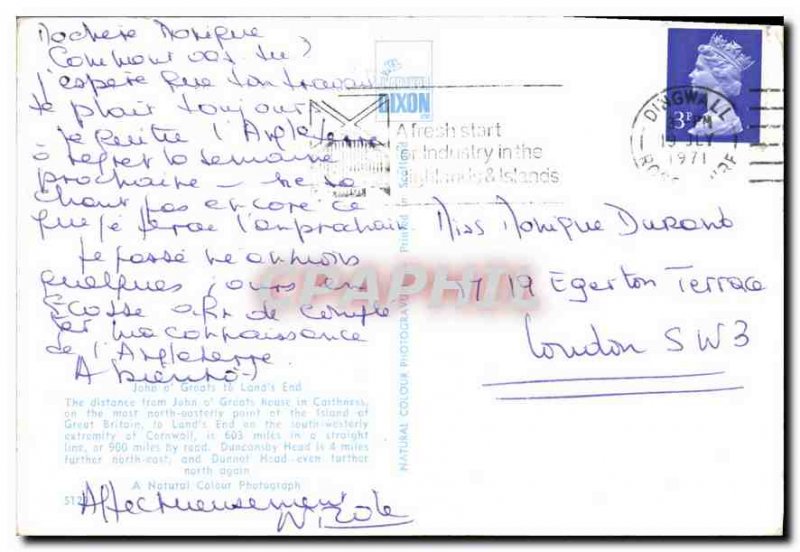 Ma chère Monique
Comment vas tu ?
J'espère que ton travail
te plaît toujours
Je quitte l'Angleterre
à regret la semaine
prochaine - ne sa
chant pas encore ce
que je ferai l'an prochain
Je passe néanmoins
quelques jours en
Écosse afin de compléter
ma connaissance
de l'Angleterre.
A bientôt
John o' Groats to Land's End
The distance from John o' Groats House in Caithness,
on the most north-easterly point of the Island of
Great Britain, to Land's End on the south-westerly
extremity of Cornwall, is 603 miles in a straight
line, or 900 miles by road. Duncansby Head is 4 miles
further north-east, and Dunnet Head even further
north again
A Natural Colour Photograph
Affectueusement
Nicole
DIXON
NATURAL COLOUR PHOTOGRAVURE Printed in Scotland
A fresh start
for Industry in the
Highlands & Islands
DINGWALL
PM
1971
ROSS-SHIRE
3P
Miss Monique Durand
17 19 Egerton Terrace
London SW3
CPAPHIL